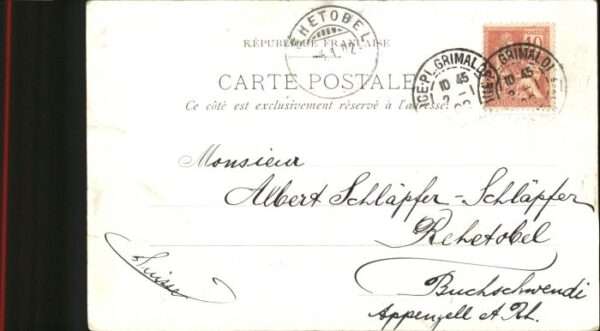 REHETOBEL
RÉPUBLIQUE FRANÇAISE
CARTE POSTALE
Ce côté est exclusivement réservé à l'adresse.
10
PL. GRIMALDI
10 45
2 - 1
PL. GRIMALDI
10 45
Monsieur
Albert Schläpfer-Schläpfer
Rehetobel
Suisse
Buchschwendi
Appenzell A Rh.